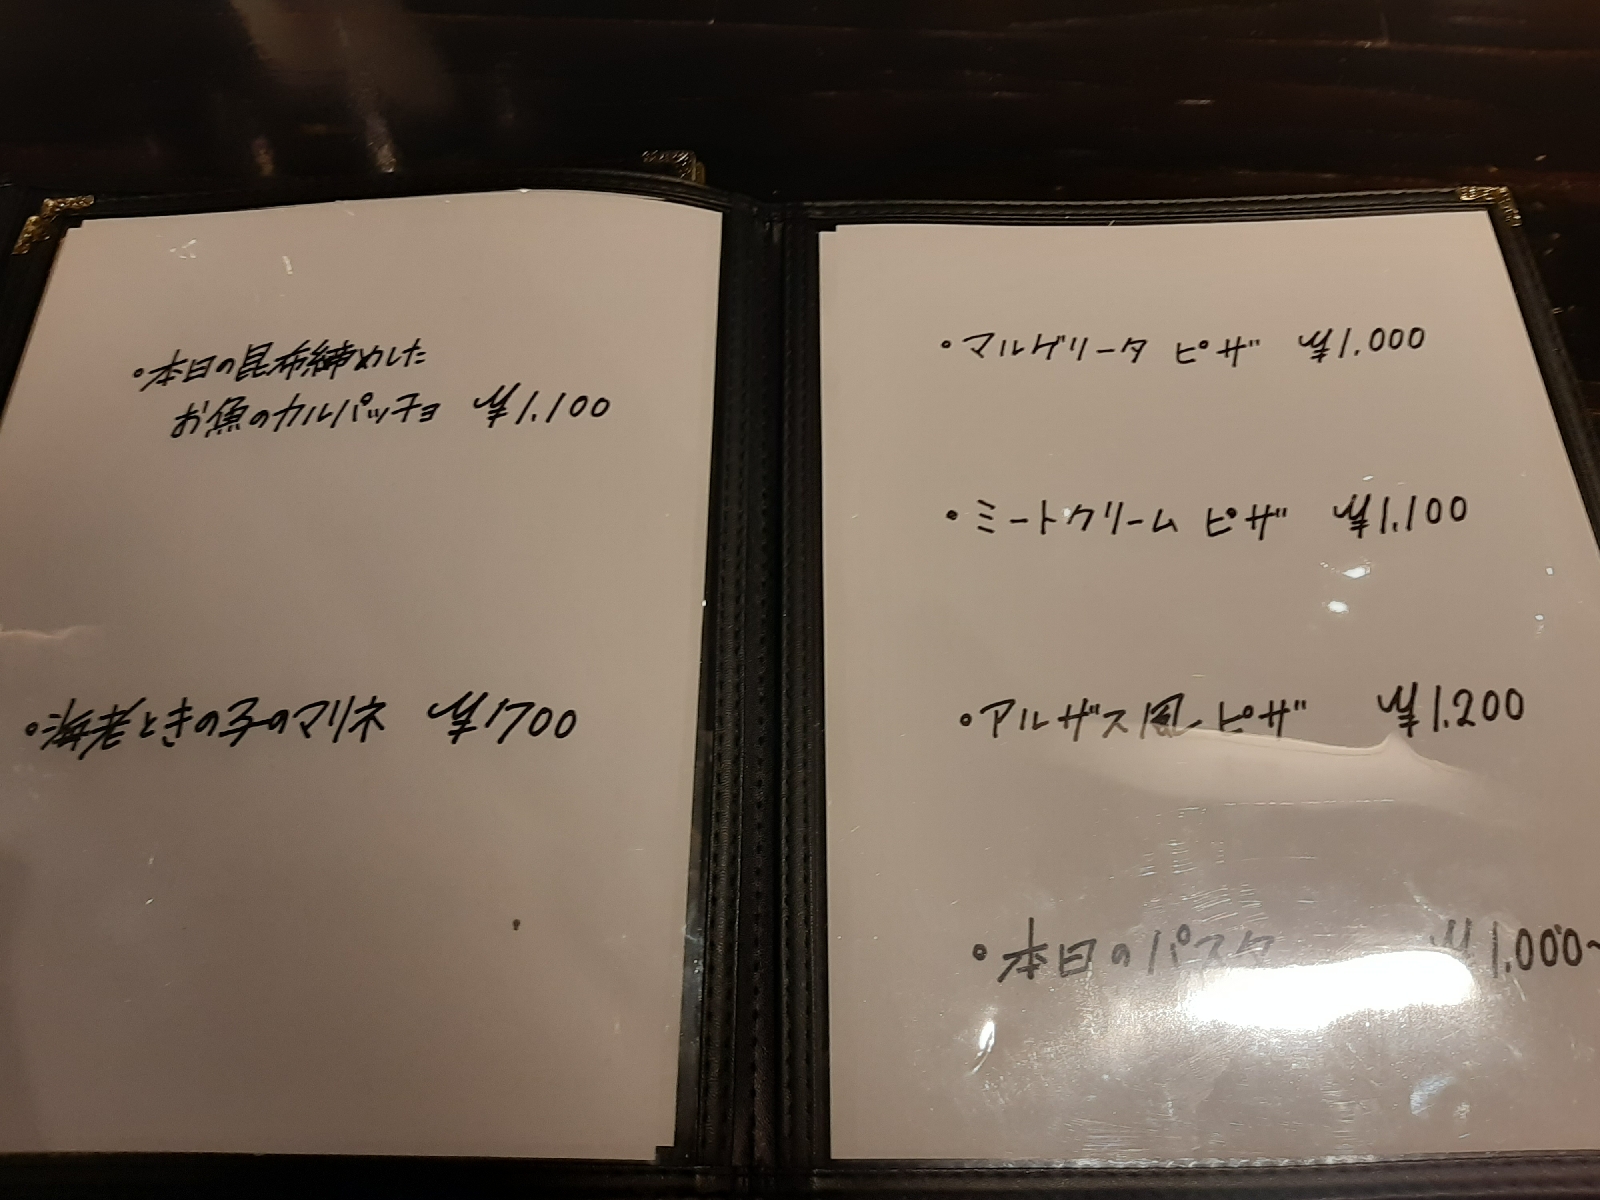 ・本日の昆布締めした
お魚のカルパッチョ ¥1.100
・海老ときの子のマリネ ¥1700
・マルゲリータ ピザ ¥1.000
・ミートクリーム ピザ ¥1.100
・アルザス風 ピザ ¥1.200
・本日のパスタ ¥1.000~